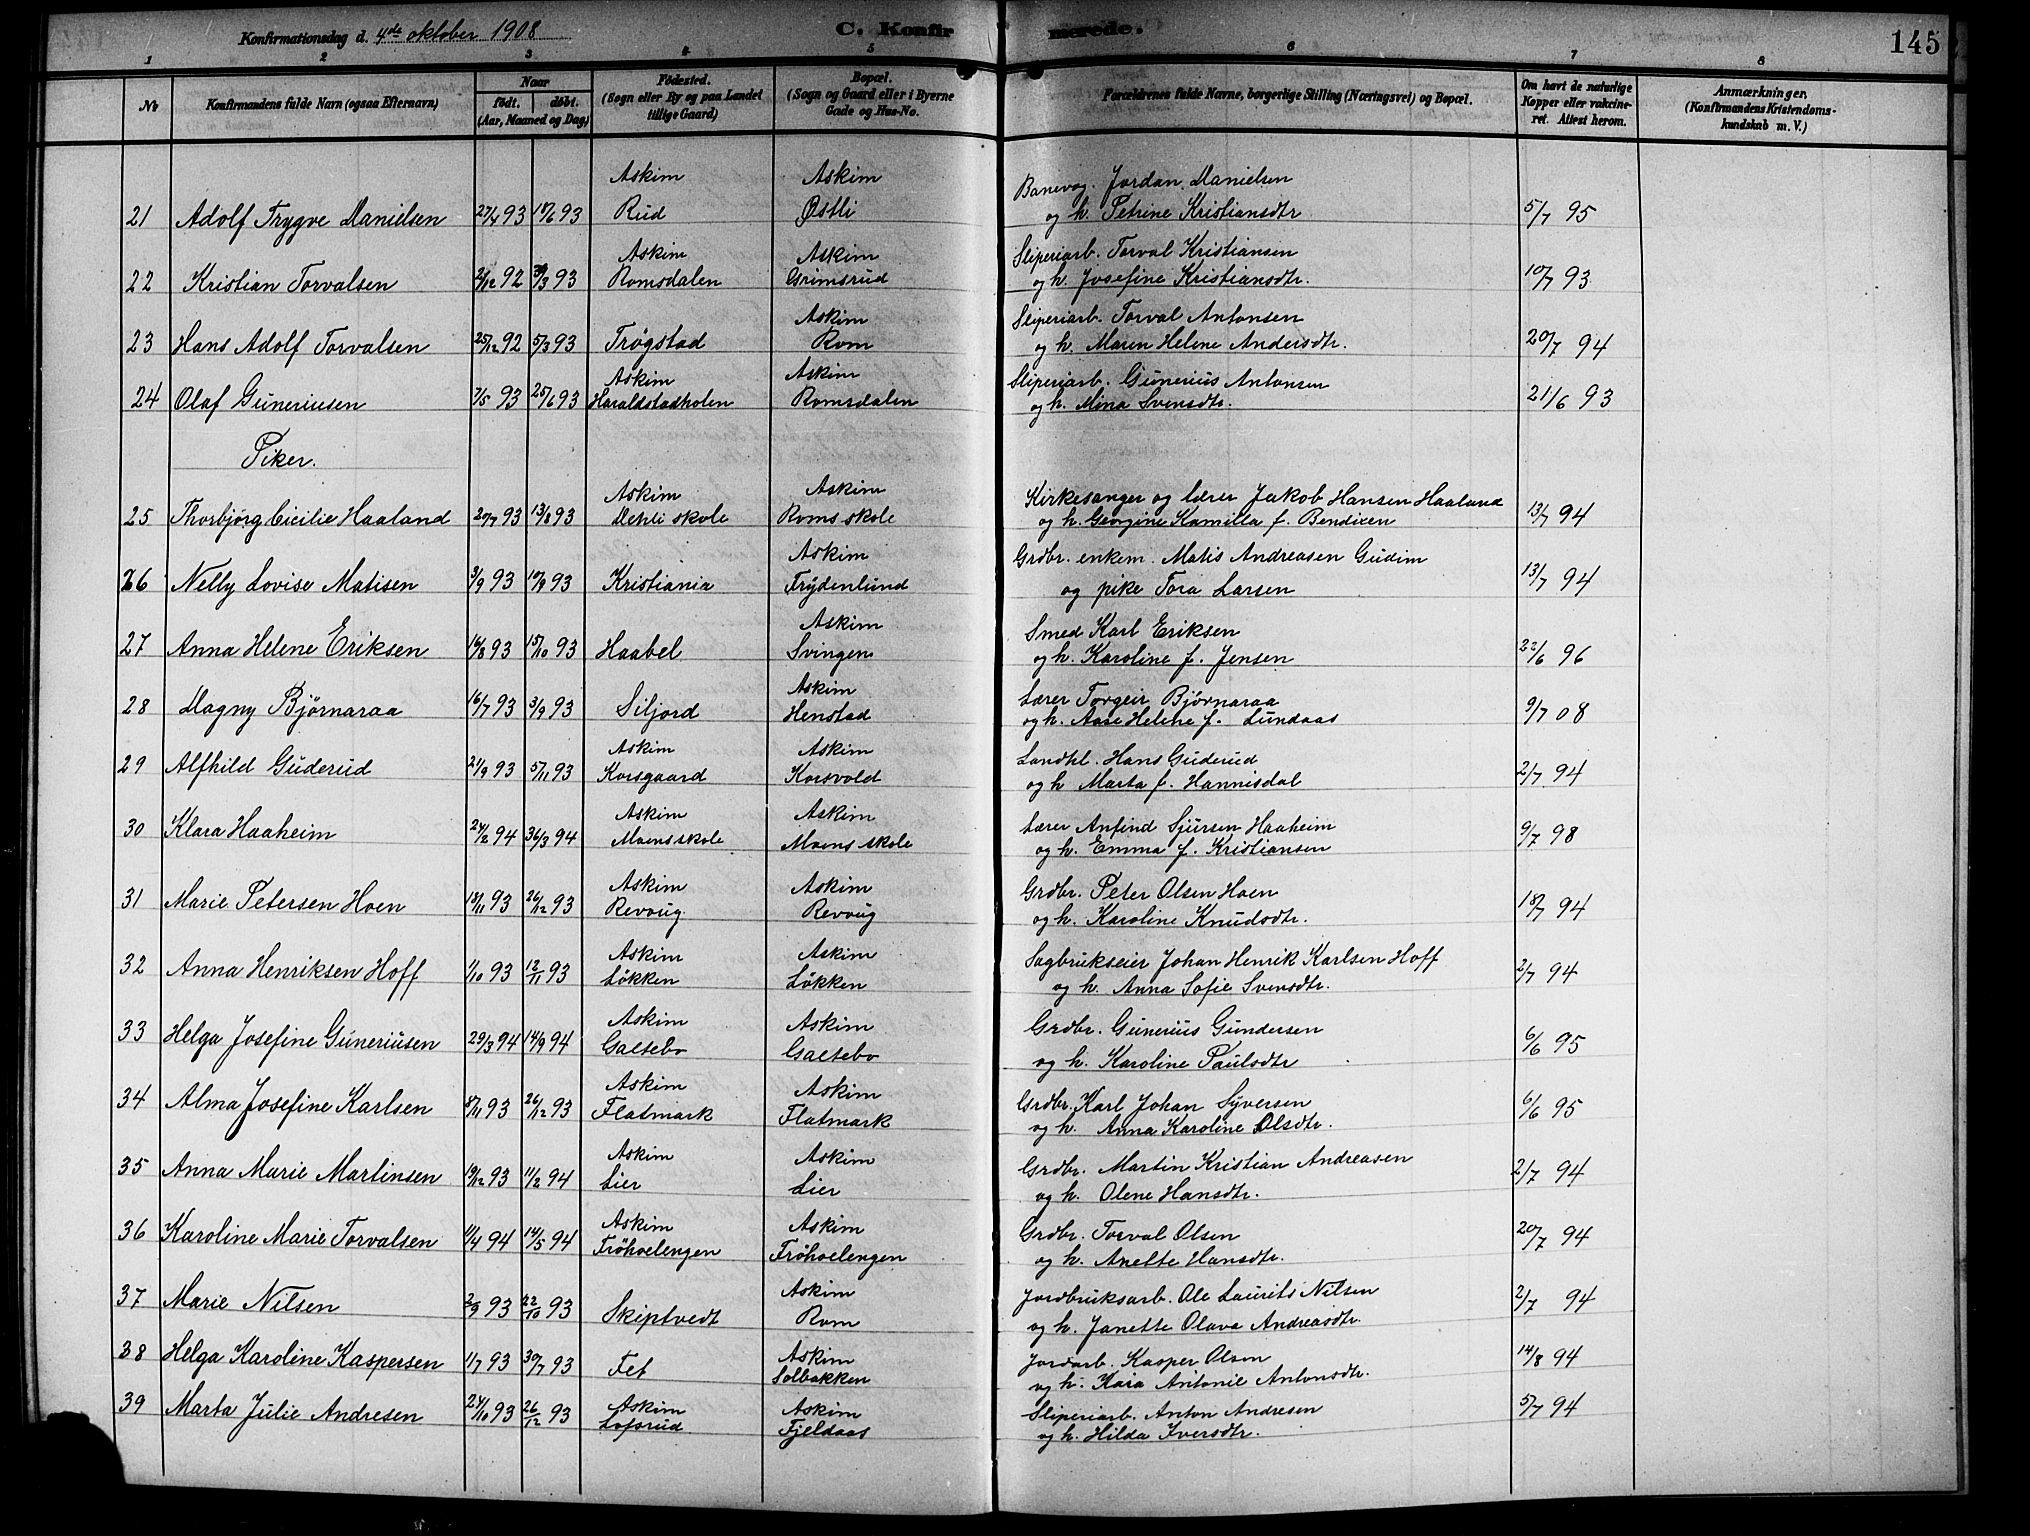 Konfirmationsdag d. 4de oktober 1908 C. Konfir merede. 145
1 2 3 4 5 6 7 8
No Konfirmandens fulde Navn (ogsaa Efternavn) Naar født. døbt. (Aar, Maaned og Dag) Fødested. (Sogn eller By og paa Landet tillige Gaard) Bopæl. (Sogn og Gaard eller i Byerne Gade og Hus-No. Forældrenes fulde Navne, borgerlige Stilling (Næringsvei) og Bopæl. Om havt de naturlige Kopper eller vakcineret. Attest herom. Anmærkninger. (Konfirmandens Kristendomskundskab m. V.)
Askim Askim Banevog. Jordan Danielsen
21 Adolf Trygve Danielsen 27/4 93 18/6 93 Rud Østli og h. Petrine Kristiansdtr 5/7 95
Askim Askim Sliperiarb. Torval Kristiansen
22 Kristian Torvalsen 2/12 92 30/3 93 Romsdalen Grimsrud og h. Josefine Kristiansdtr. 10/7 93
Askim Sliperiarb. Torval Antonsen
23 Hans Adolf Torvalsen 25/12 92 5/3 93 Trøgstad Rom og h. Maren Helene Andersdtr. 20/7 94
Askim Askim Sliperiarb. Gunerius Antonsen
24 Olaf Guneriusen 7/5 93 25/6 93 Haraldstadholen Romsdalen og h. Mina Svensdtr. 21/6 93
Piker.
Askim Askim Kirkesanger og lærer Jakob Hansen Haaland
25 Thorbjørg Cicilie Haaland 20/7 93 13/8 93 Dehli skole Roms skole og h. Georgine Kamilla f. Bendixen 13/7 94
Askim Grdbr. enkem. Matis Andreasen Gudim
26 Nelly Lovise Matisen 3/9 93 10/9 93 Kristiania Frydenlund og pike Tora Larsen 13/7 94
Askim Smed Karl Eriksen
27 Anna Helene Eriksen 16/8 93 15/10 93 Haabøl Svingen og h. Karoline f. Jensen 22/6 96
Askim Lærer Torgeir Bjørnaraa
28 Dagny Bjørnaraa 16/7 93 3/9 93 Siljord Henstad og h. Aase Helene f. Lundaas 9/7 08
Askim Askim Landhl. Hans Guderud
29 Alfhild Guderud 21/9 93 5/11 93 Korsgaard Korsvold og h Marta f. Hannisdal 2/7 94
Askim Askim Lærer Anfind Sjursen Haaheim
30 Klara Haaheim 24/2 94 36/3 94 Moens skole Moens skole og h. Emma f. Kristiansen 9/7 98
Askim Askim Grdbr. Peter Olsen Hoen
31 Marie Petersen Hoen 18/11 93 26/12 93 Revoug Revoug og h. Karoline Knudsdtr. 18/7 94
Askim Askim Sagbrukseier Johan Henrik Karlsen Hoff
32 Anna Henriksen Hoff 1/10 93 12/11 93 Løkken Løkken og h. Anna Sofie Svensdtr. 2/7 94
Askim Askim Grdbr. Gunerius Gundersen
33 Helga Josefine Guneriusen 29/3 94 14/9 94 Galtebo Galtebo og h. Karoline Paulsdtr 6/6 95
Askim Askim Grdbr. Karl Johan Syversen
34 Alma Josefine Karlsen 8/11 93 26/12 93 Flatmark Flatmark og h. Anna Karoline Olsdtr. 6/6 95
Askim Askim Grdbr. Martin Kristian Andreasen
35 Anna Marie Martinsen 19/12 93 11/2 94 Lier Lier og h. Olene Hansdtr. 2/7 94
Askim Askim Grdbr. Torval Olsen
36 Karoline Marie Torvalsen 11/4 94 14/5 94 Frøhoelengen Frøhoelengen og h. Anette Hansdtr. 20/7 94
Askim Jordbruksarb. Ole Laurits Nilsen
37 Marie Nilsen 2/9 93 22/10 93 Skiptvedt Rom og h. Janette Olava Andreasdtr. 2/7 94
Askim Jordarb. Kasper Olsen
38 Helga Karoline Kaspersen 1/7 93 30/7 93 Fet Solbakken og h. Kaia Antonie Antonsdtr. 14/8 94
Askim Askim Sliperiarb. Anton Andresen
39 Marta Julie Andresen 24/10 93 26/12 93 Lofsrud Fjeldaas og h. Hilda Iversdtr. 5/7 94